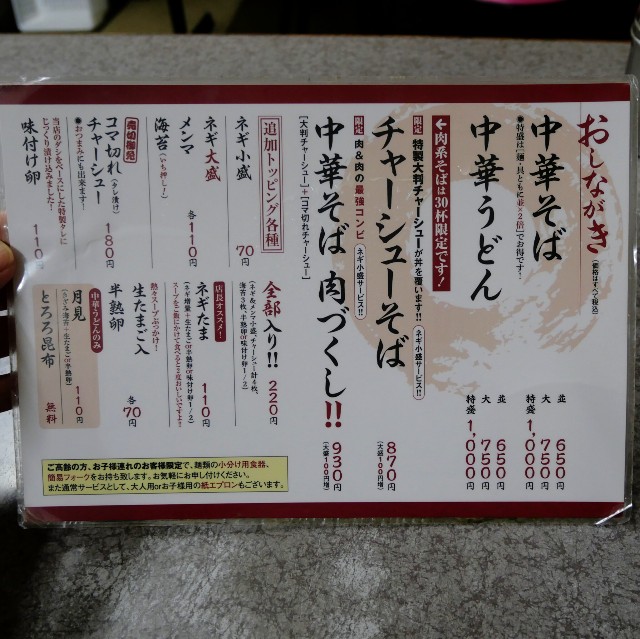 おしながき（価格はすべて税込）
中華そば
並 650円
大 750円
特盛 1,000円
●特盛は「麺・具ともに並×2倍」でお得です!
中華うどん
並 650円
大 750円
特盛 1,000円
←肉系そばは30杯限定です!
限定 特製大判チャーシューが丼を覆います!!
チャーシューそば ネギ小盛サービス!!
870円
（大盛100円増）
限定 肉&肉の最強コンビ ネギ小盛サービス!!
中華そば 肉づくし!!
930円
（大盛100円増）
[大判チャーシュー]+[コマ切れチャーシュー]
追加トッピング各種
ネギ小盛 70円
ネギ大盛
メンマ
海苔（いち押し!）
各110円
売切御免
コマ切れ（タレ漬け）
チャーシュー 180円
●おつまみにも出来ます!
当店のダシをベースにした特製タレに
じっくり漬け込みました!
味付け卵 110円
全部入り!! 220円
（ネギ&メンマ小盛、チャーシュー計4枚、
海苔3枚、半熟卵or味付け卵1/2）
店長オススメ!
ネギたま 110円
（ネギ増量+生たまごor半熟卵or味付け卵1/2）
スープを二
熱々スープぶっかけ!
生たまご入
半熟卵
各70円
中華うどんのみ
月見 110円
（きざみ海苔+生たまごor半熟卵）
とろろ昆布 無料
ご高齢の方、お子様連れのお客様限定で、麺類の小分け用食器、
簡易フォークをお持ち致します。お気軽にお申し付けください。
また通常サービスとして、大人用orお子様用の紙エプロンもございます。